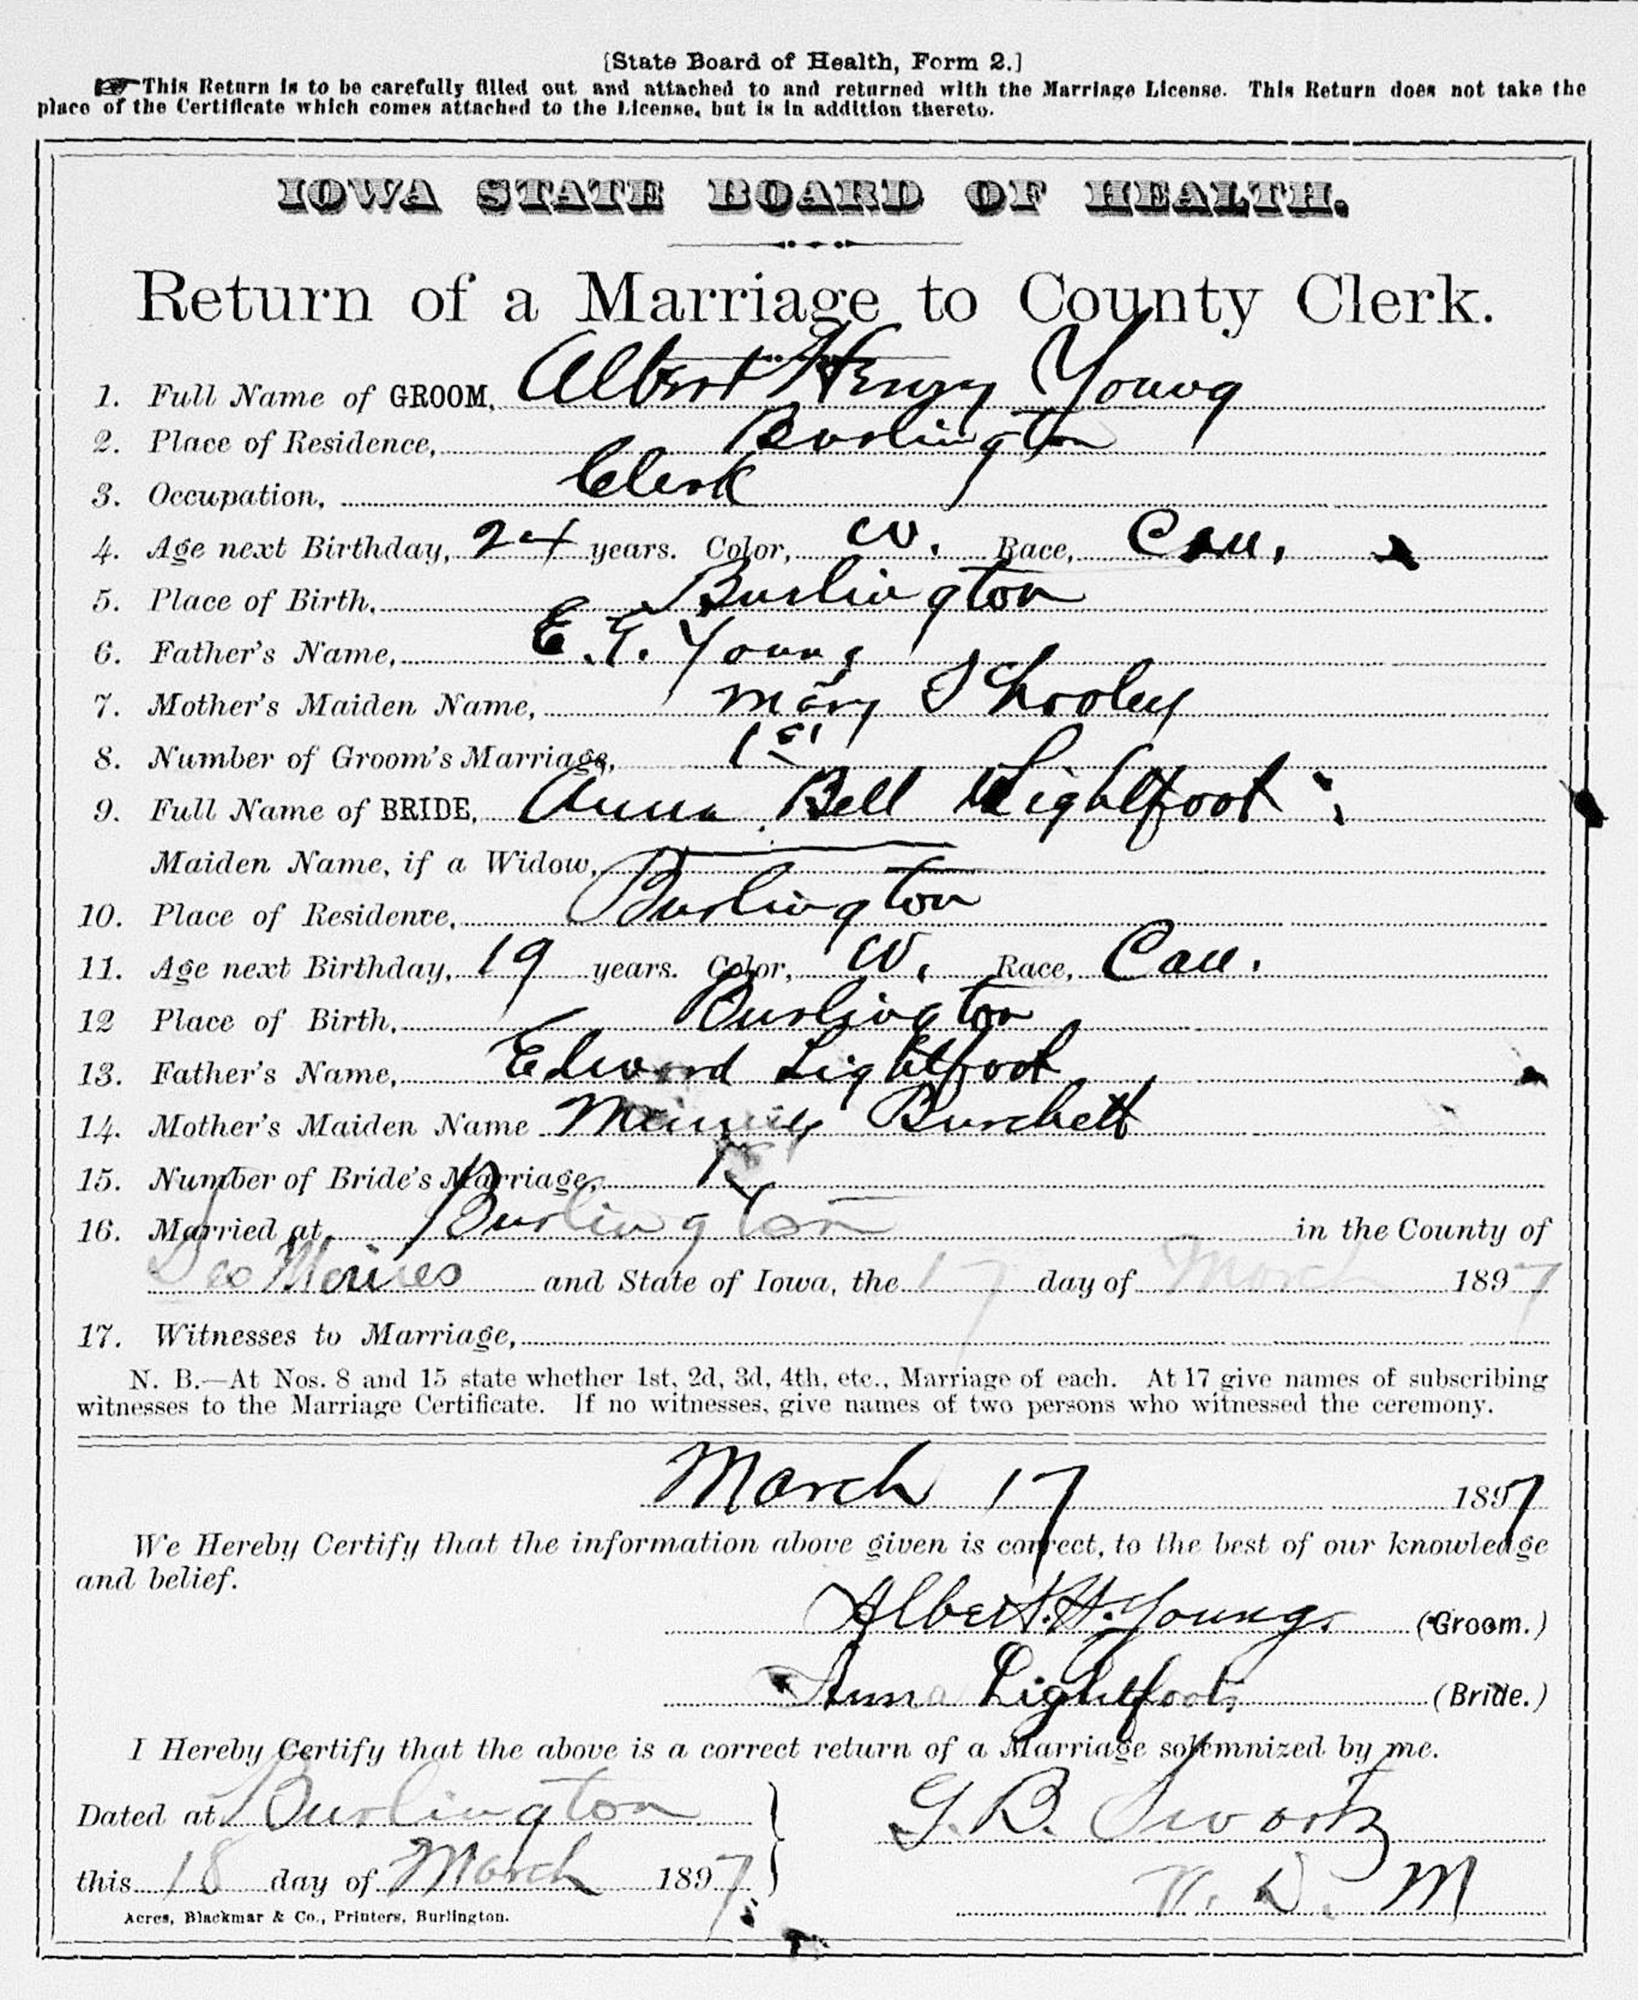 [State Board of Health, Form 2.]
☞ This Return is to be carefully filled out and attached to and returned with the Marriage License. This Return does not take the
place of the Certificate which comes attached to the License, but is in addition thereto.
IOWA STATE BOARD OF HEALTH.
Return of a Marriage to County Clerk.
1. Full Name of GROOM, Albert Henry Young
2. Place of Residence, Burlington
3. Occupation, Clerk
4. Age next Birthday, 24 years. Color, W. Race, Cau.
5. Place of Birth, Burlington
6. Father's Name, E. T. Young
7. Mother's Maiden Name, Mary Shooley
8. Number of Groom's Marriage, 1st
9. Full Name of BRIDE, Anna Bell Lightfoot
Maiden Name, if a Widow,
10. Place of Residence, Burlington
11. Age next Birthday, 19 years. Color, W. Race, Cau.
12 Place of Birth, Burlington
13. Father's Name, Edward Lightfoot
14. Mother's Maiden Name Burchett
15. Number of Bride's Marriage,
16. Married at, Burlington in the County of
Des Moines and State of Iowa, the 17 day of March 1897
17. Witnesses to Marriage,
N. B.—At Nos. 8 and 15 state whether 1st, 2d, 3d, 4th, etc., Marriage of each. At 17 give names of subscribing
witnesses to the Marriage Certificate. If no witnesses, give names of two persons who witnessed the ceremony.
March 17 1897
We Hereby Certify that the information above given is correct, to the best of our knowledge
and belief.
Albert. H. Young. (Groom.)
Anna Lightfoot, (Bride.)
I Hereby Certify that the above is a correct return of a Marriage solemnized by me.
Dated at Burlington
G. B. Swartz
this 18 day of March 1897
V. D. M
Acres, Blackmar & Co., Printers, Burlington.